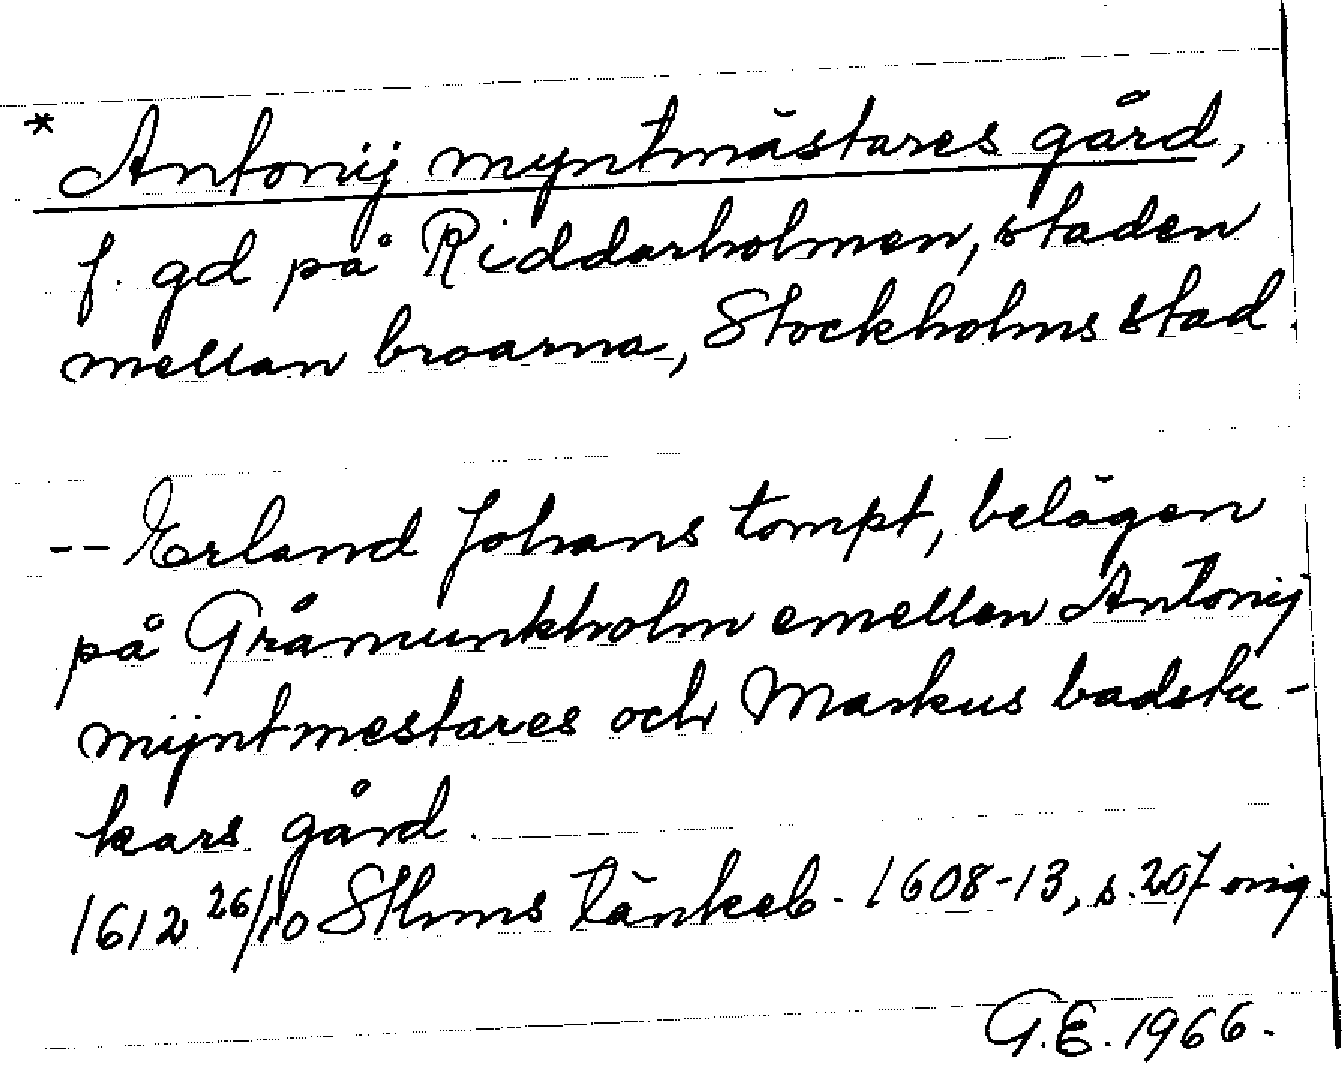 * Antonij myntmästares gård,
f. gd på Riddarholmen, staden
mellan broarna, Stockholms stad.
-- Erland Johans tompt, belägen
på Gråmunkholm emellen Antonij
mÿntmestares och Markus badste-
kars gård.
1612 26/10 Sthms tänkeb. 1608-13, s. 207 orig.
G.E. 1966.